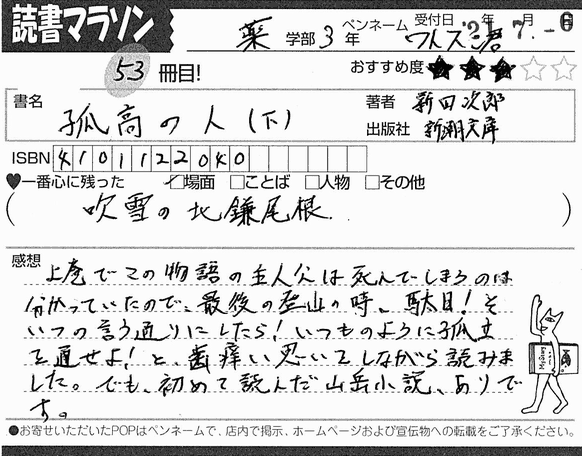 読書マラソン
薬 学部 3 年 ペンネーム ワトスン君 受付日 '21年 7月 -6
53 冊目! おすすめ度 ★★★☆☆
書名 孤高の人(下) 著者 新田次郎
出版社 新潮文庫
ISBN 4101122040
♥一番心に残った ☑場面 □ことば □人物 □その他
(吹雪の北鎌尾根.)
感想 上巻でこの物語の主人公は死んでしまうのは
分かっていたので、最後の登山の時、駄目!そ
いつの言う通りにしたら!いつものように孤立
を通せよ!と、歯痒い思いをしながら読みま
した。でも、初めて読んだ山岳小説、ありで
す。
●お寄せいただいたPOPはペンネームで、店内で掲示、ホームページおよび宣伝物への転載をご了承ください。